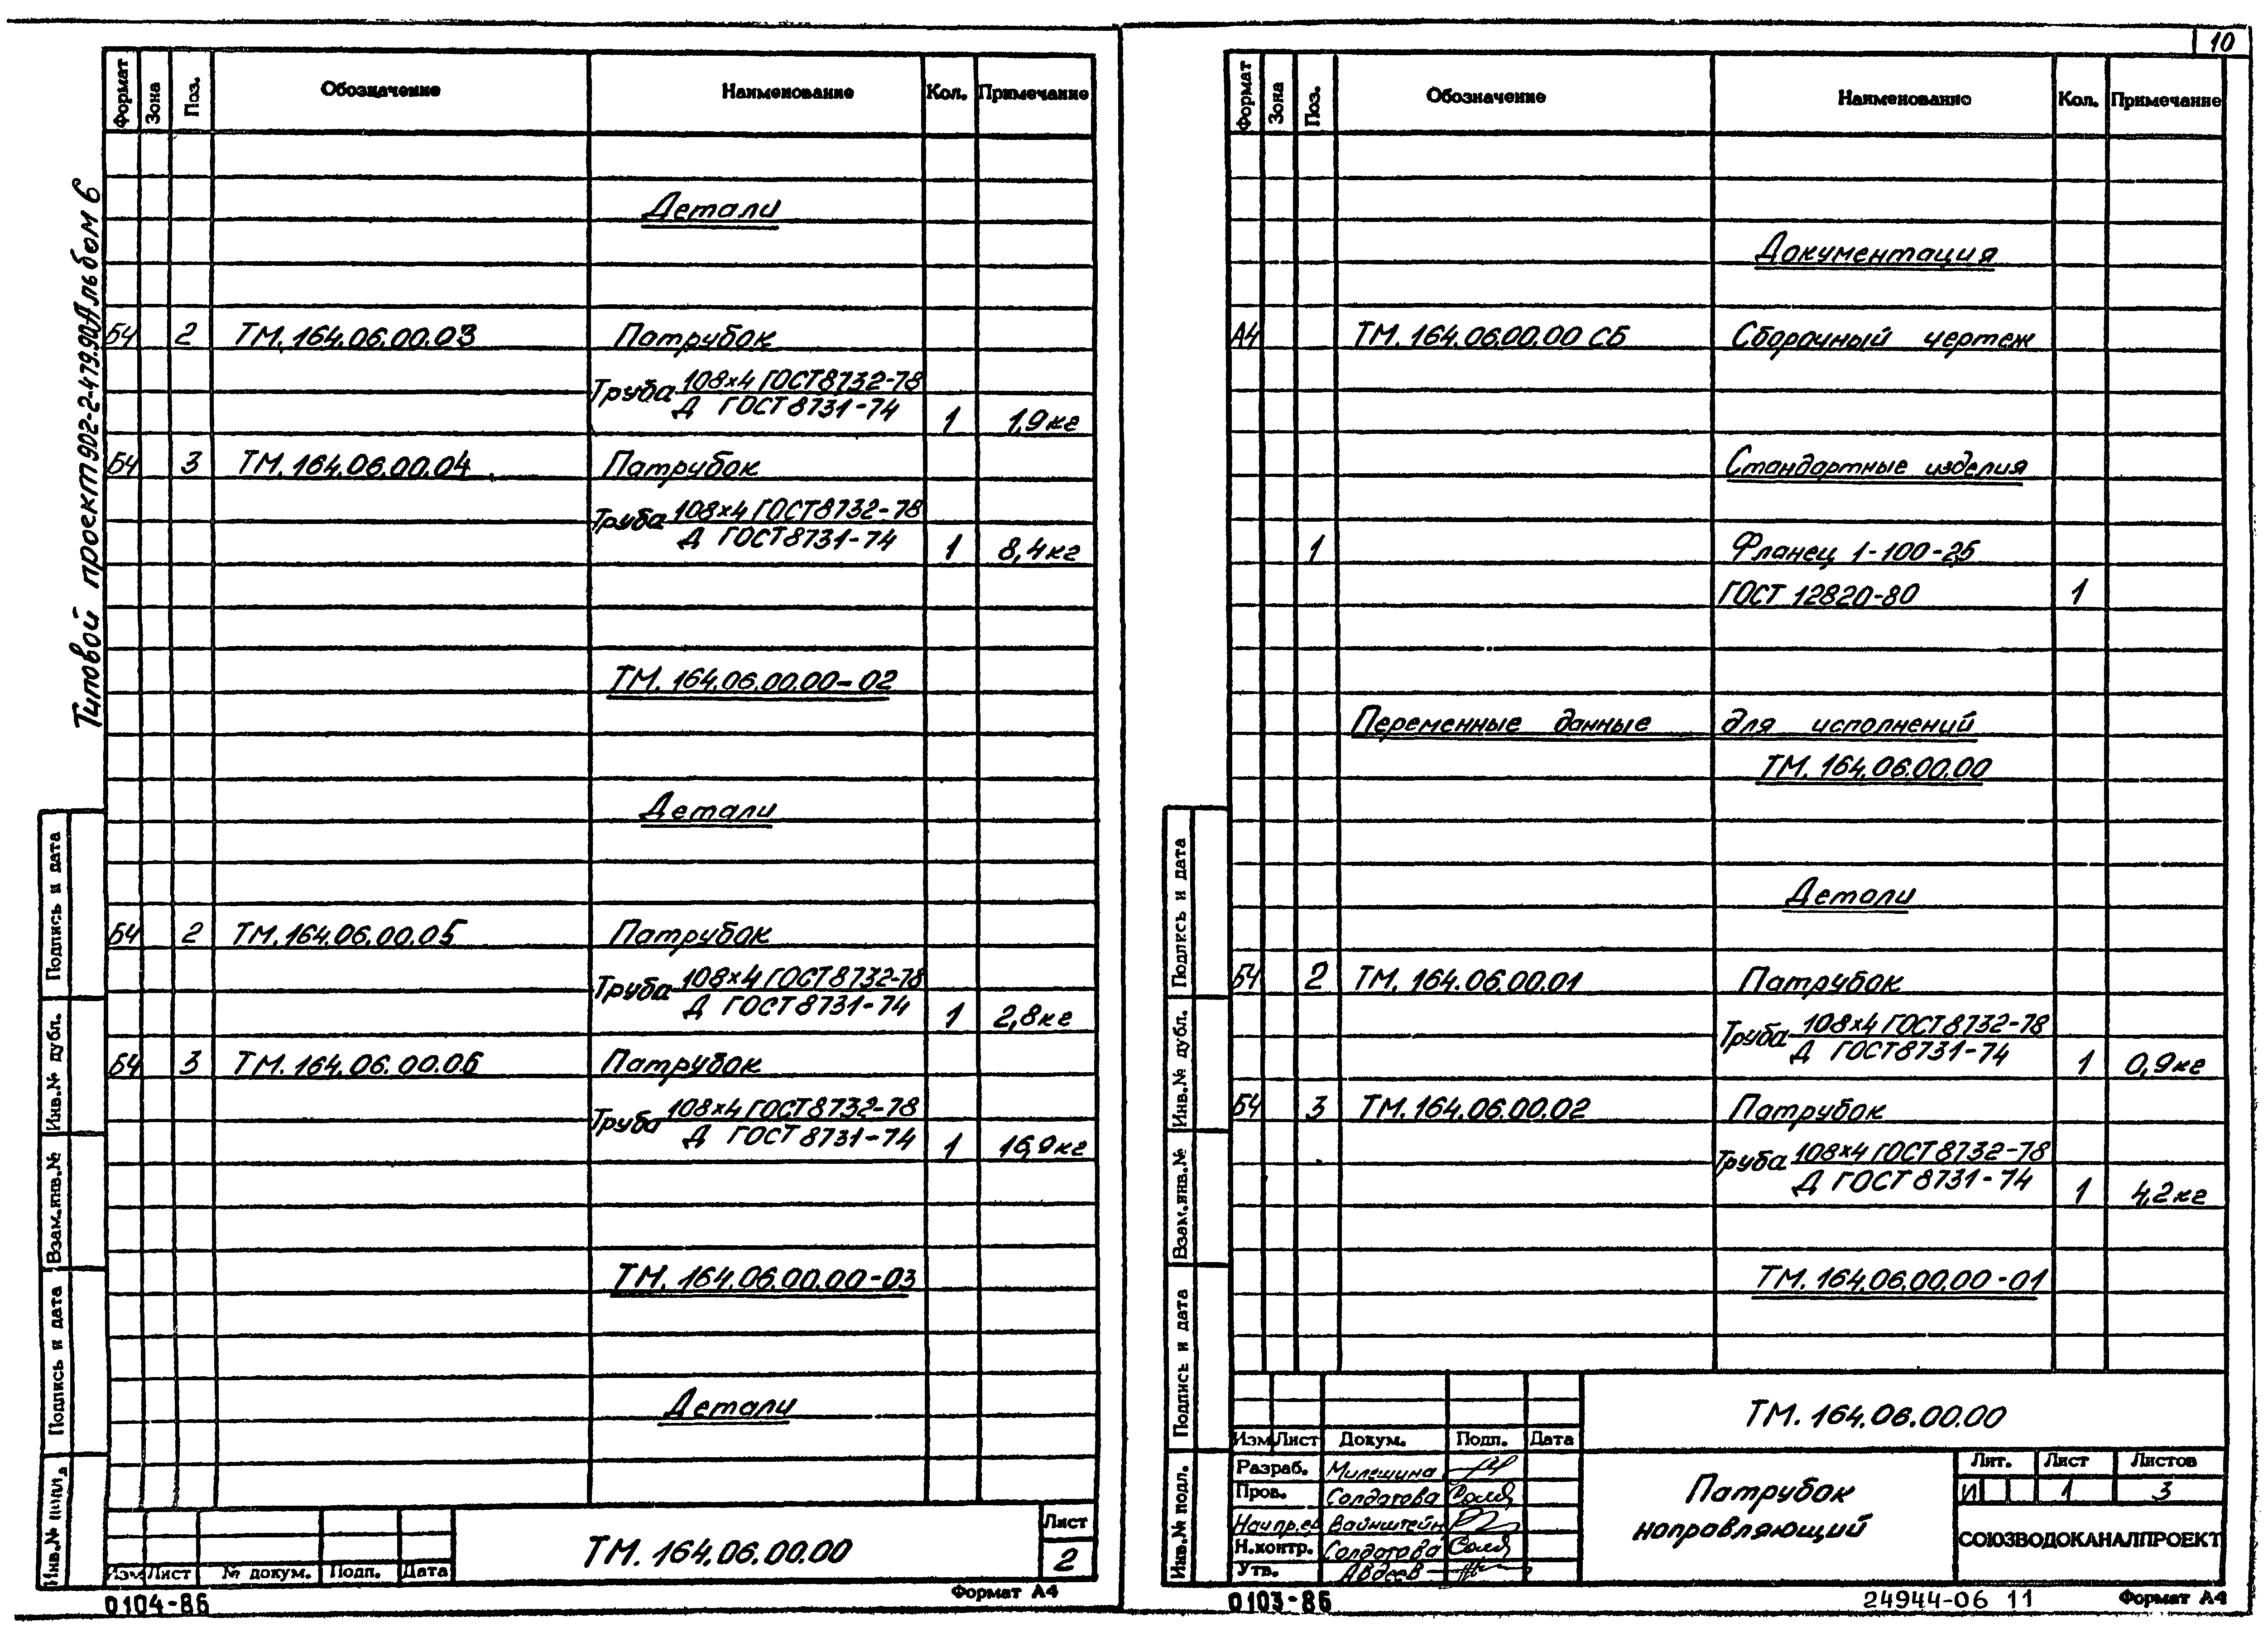 Типовой проект 902-2-479.90 Альбом 6
Формат
Зона
Поз.
Обозначение
Наименование
Кол.
Примечание
Детали
Б4 2 ТМ.164.06.00.03 Патрубок
Труба 108×4 ГОСТ 8732-78
Д ГОСТ 8731-74 1 1,9кг
Б4 3 ТМ.164.06.00.04 Патрубок
Труба 108×4 ГОСТ 8732-78
Д ГОСТ 8731-74 1 8,4кг
ТМ.164.06.00.00-02
Детали
Б4 2 ТМ.164.06.00.05 Патрубок
Труба 108×4 ГОСТ 8732-78
Д ГОСТ 8731-74 1 2,8кг
Б4 3 ТМ.164.06.00.06 Патрубок
Труба 108×4 ГОСТ 8732-78
Д ГОСТ 8731-74 1 16,9кг
ТМ.164.06.00.00-03
Детали
Подпись и дата
Инв.№ дубл.
Взам.инв.№
Подпись и дата
Инв.№ подл.
Изм Лист № докум. Подп. Дата
ТМ.164.06.00.00
Лист
2
0104-86
Формат А4
10
Формат
Зона
Поз.
Обозначение
Наименование
Кол.
Примечание
Документация
А4 ТМ.164.06.00.00 СБ Сборочный чертеж
Стандартные изделия
1 Фланец 1-100-2,5
ГОСТ 12820-80 1
Переменные данные для исполнений
ТМ.164.06.00.00
Детали
Б4 2 ТМ.164.06.00.01 Патрубок
Труба 108×4 ГОСТ 8732-78
Д ГОСТ 8731-74 1 0,9кг
Б4 3 ТМ.164.06.00.02 Патрубок
Труба 108×4 ГОСТ 8732-78
Д ГОСТ 8731-74 1 4,2кг
ТМ.164.06.00.00-01
Подпись и дата
Инв.№ дубл.
Взам.инв.№
Подпись и дата
Инв.№ подл.
Изм Лист Докум. Подп. Дата
Разраб. Милешина
Пров. Солдатова
Нач.пр.ед Вайнштейн
Н.контр. Солдатова
Утв. Авдеев
ТМ.164.06.00.00
Патрубок
направляющий
Лит. Лист Листов
И 1 3
СОЮЗВОДОКАНАЛПРОЕКТ
0103-86
24944-06 11
Формат А4